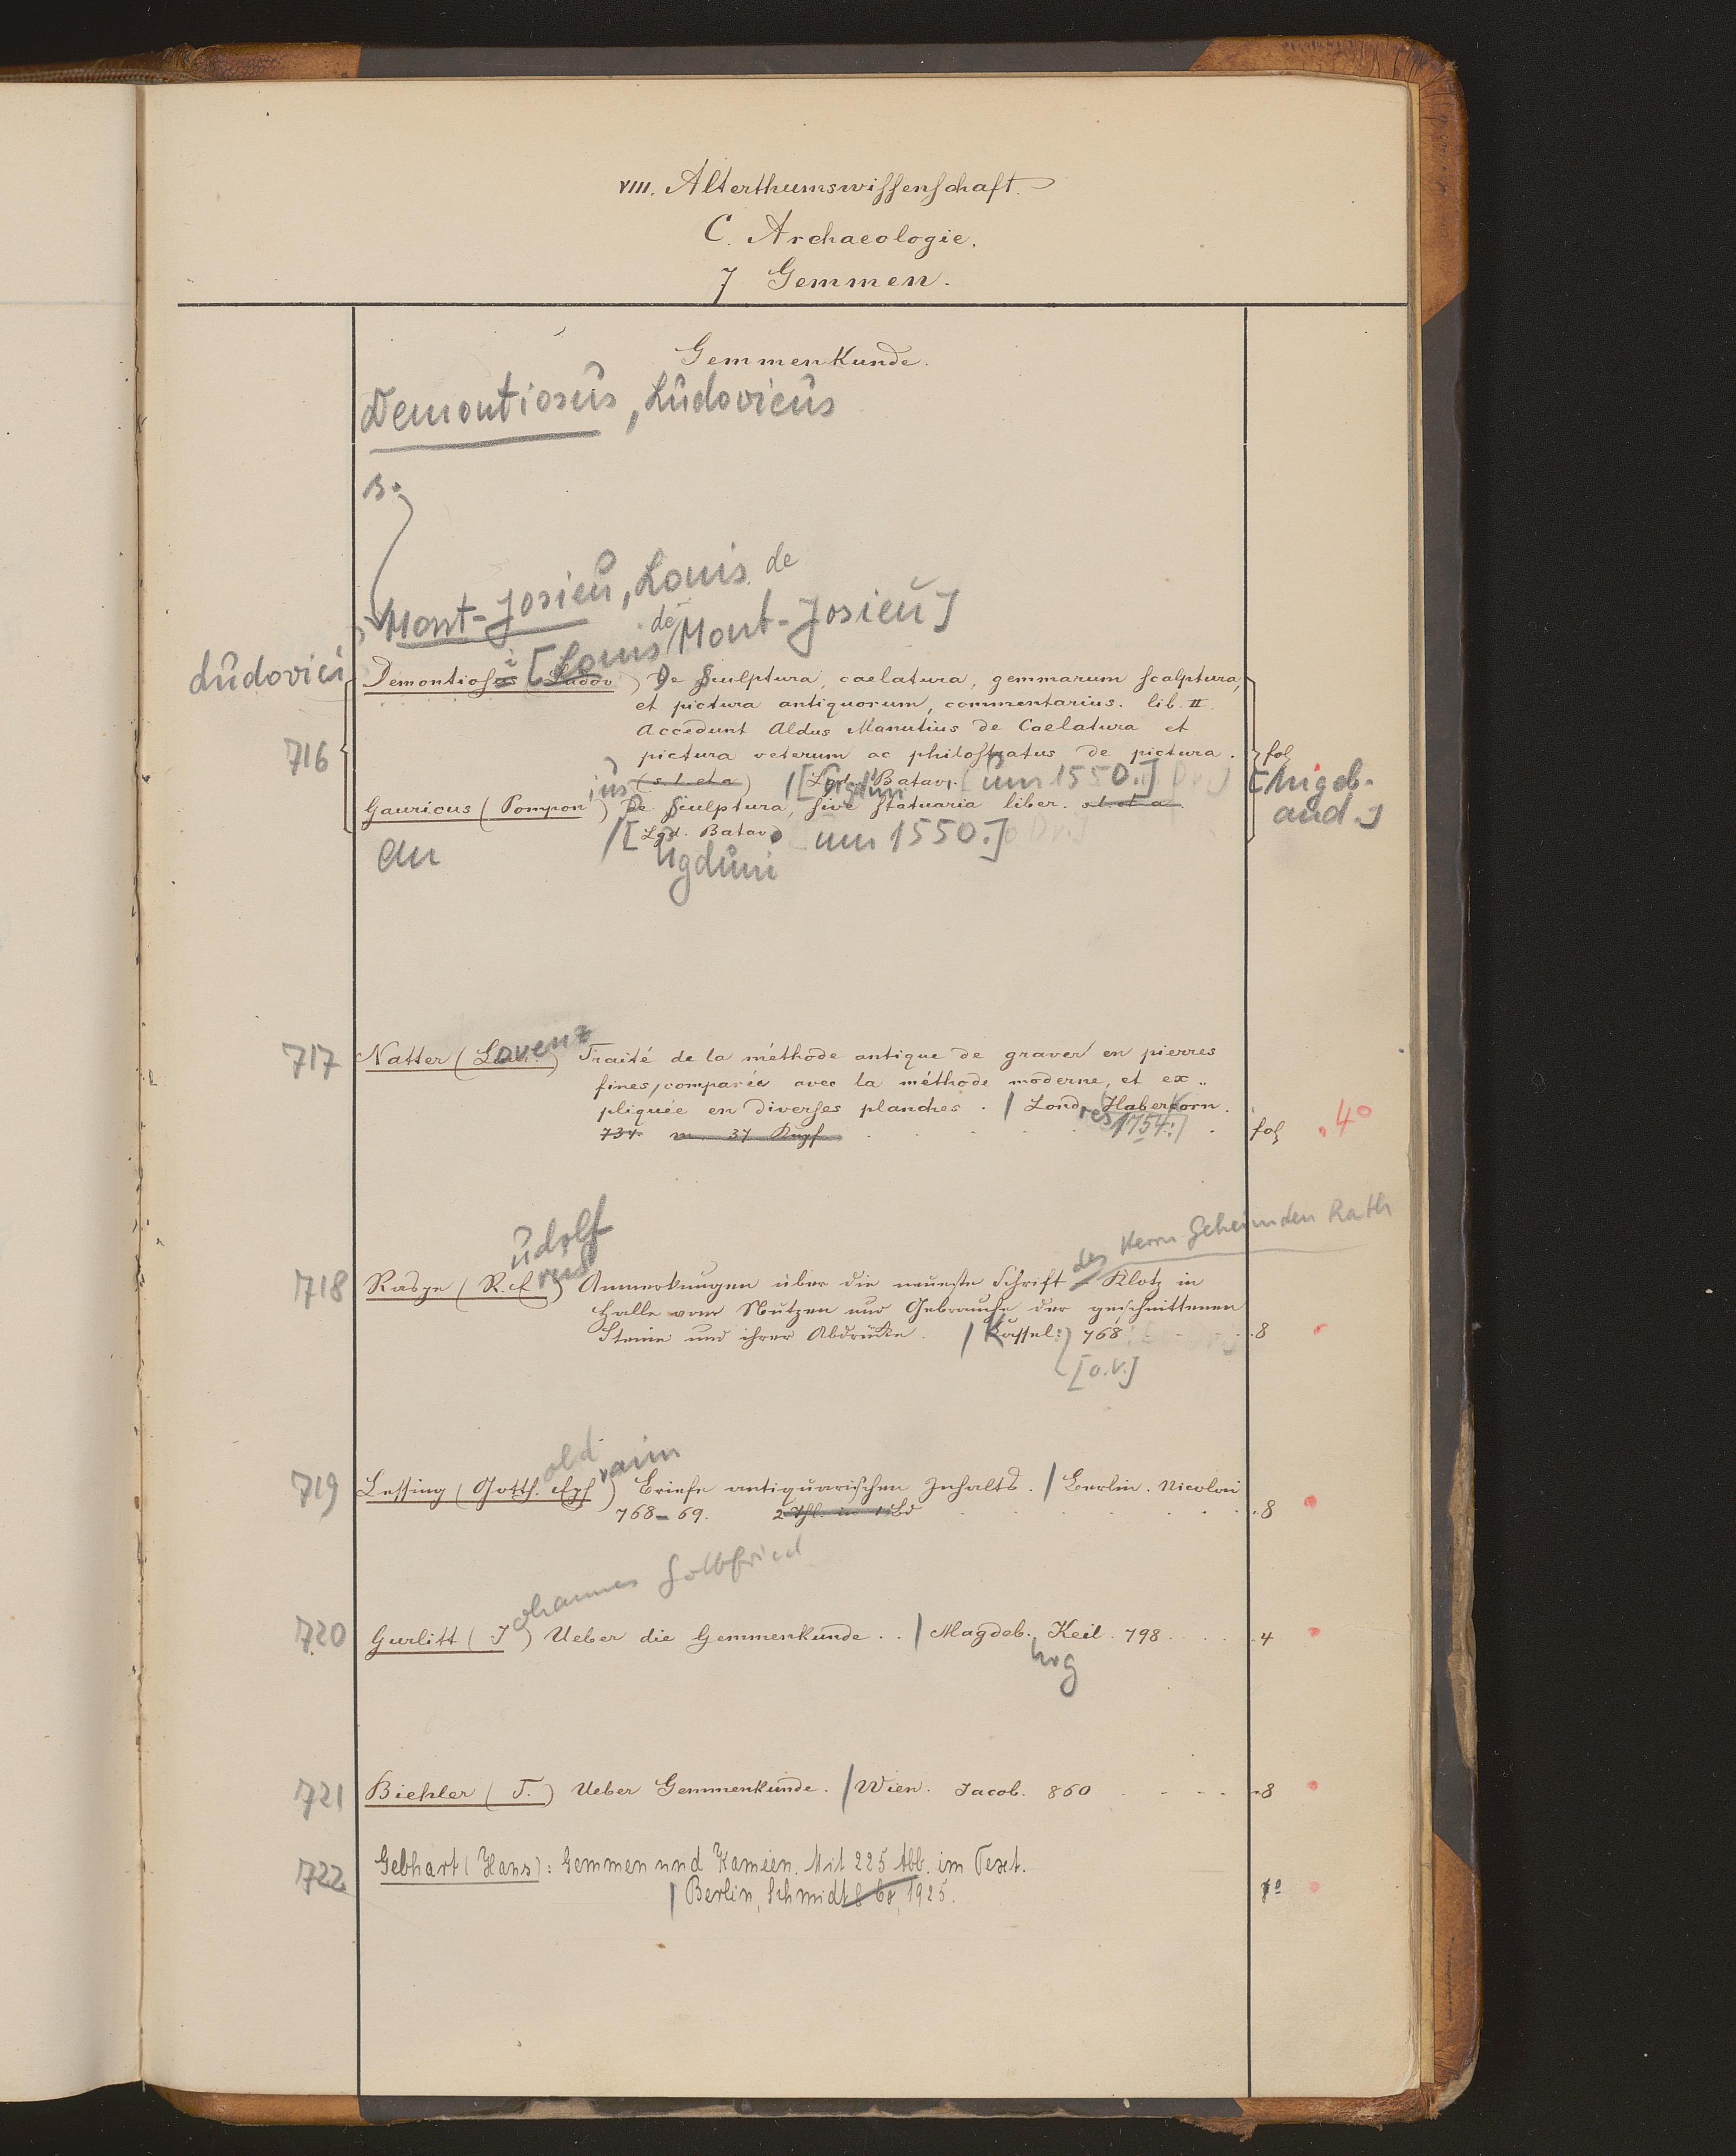 VIII. Alterthumswissenschaft.
C. Archaeologie.
7 Gemmen.
Gemmenkunde.
Demontiosus, Ludovicus
s.
Mont-Josieu, Louis de
[Louis de Mont-Josieu]
Ludovici Demontiosi (Ludov.) De Sculptura, caelatura, gemmarum scalptura,
et pictura antiquorum, commentarius. lib. II.
Accedunt Aldus Manutius de Caelatura et
716 pictura veterum ac philostratus de pictura. fol
(s l et a) / [Lugduni Batav. [um 1550.] [Angeb.
Gauricus (Pomponius) De Sculptura, sive Statuaria liber. s l et a. and.]
/ [Lgd. Batav. um 1550.]
an ugduni
717 Natter (Lorenz) Traité de la méthode antique de graver en pierres
fines, comparée avec la méthode moderne, et ex„
pliquée en diverses planches. / Londres Haberkorn.
734. m 37 Kupf 1754.] fol 4°
udolf
des Herrn Geheimden Rath
718 Raspe (R. E.) Anmerkungen über die neueste Schrift Klotz in
Halle vom Nutzen und Gebrauche der geschnittenen
Steine und ihrer Abdrücke. / Kassel: 768 8
[o.V.]
old raim
719 Lessing (Gotth. Eph) Briefe antiquarischen Inhalts. / Berlin. Nicolai
768-69. 2 Thl. in 1 Bd 8
ohannes Gottfried
720 Gurlitt (J) Ueber die Gemmenkunde. / Magdeb. Keil. 798 4
urg
721 Biehler (T.) Ueber Gemmenkunde. / Wien. Jacob. 860 8
722 Gebhart (Hans): Gemmen und Kameen. Mit 225 Abb. im Text.
/ Berlin, Schmidt & Co, 1925.